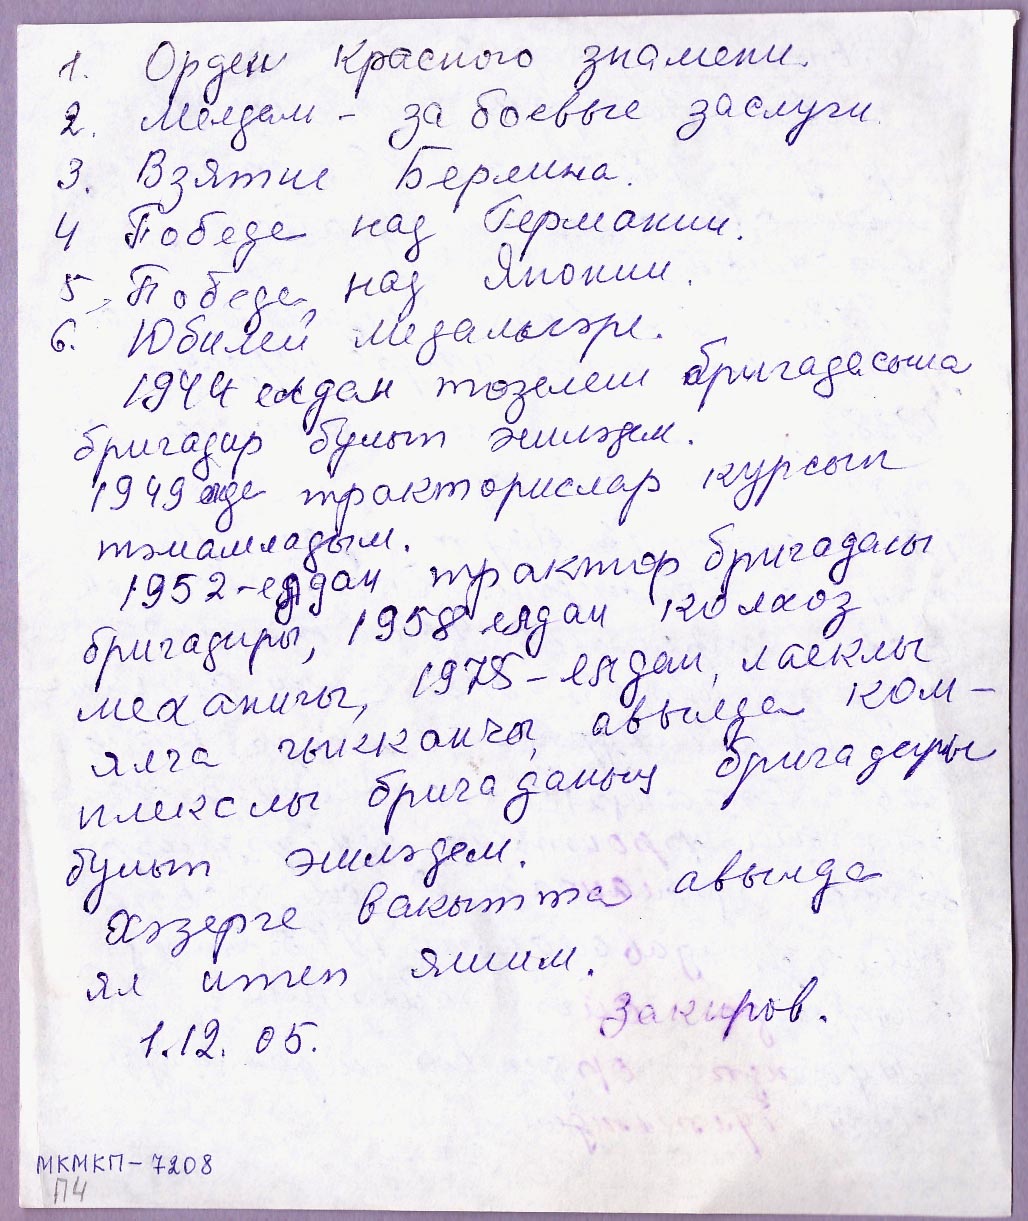 1. Орден Красного знамени.
2. Медаль - за боевые заслуги.
3. Взятие Берлина.
4 Победа над Германии.
5, Победа над Японии.
6. Юбилей медальләре.
1944 елдан төзелеш бригадасына
бригадир булып эшләдем.
1949 елда трактористлар курсын
тәмамладым.
1952-елдан трактор бригадасы
бригадиры, 1958 елдан колхоз
механигы, 1975-елдан, лаеклы
ялга чыкканчы, авылда ком-
плекслы бригаданың бригадиры
булып эшләдем.
Хәзерге вакытта авылда
ял итеп яшим.
Закиров.
1.12.05.
МКМКП-7208
П4